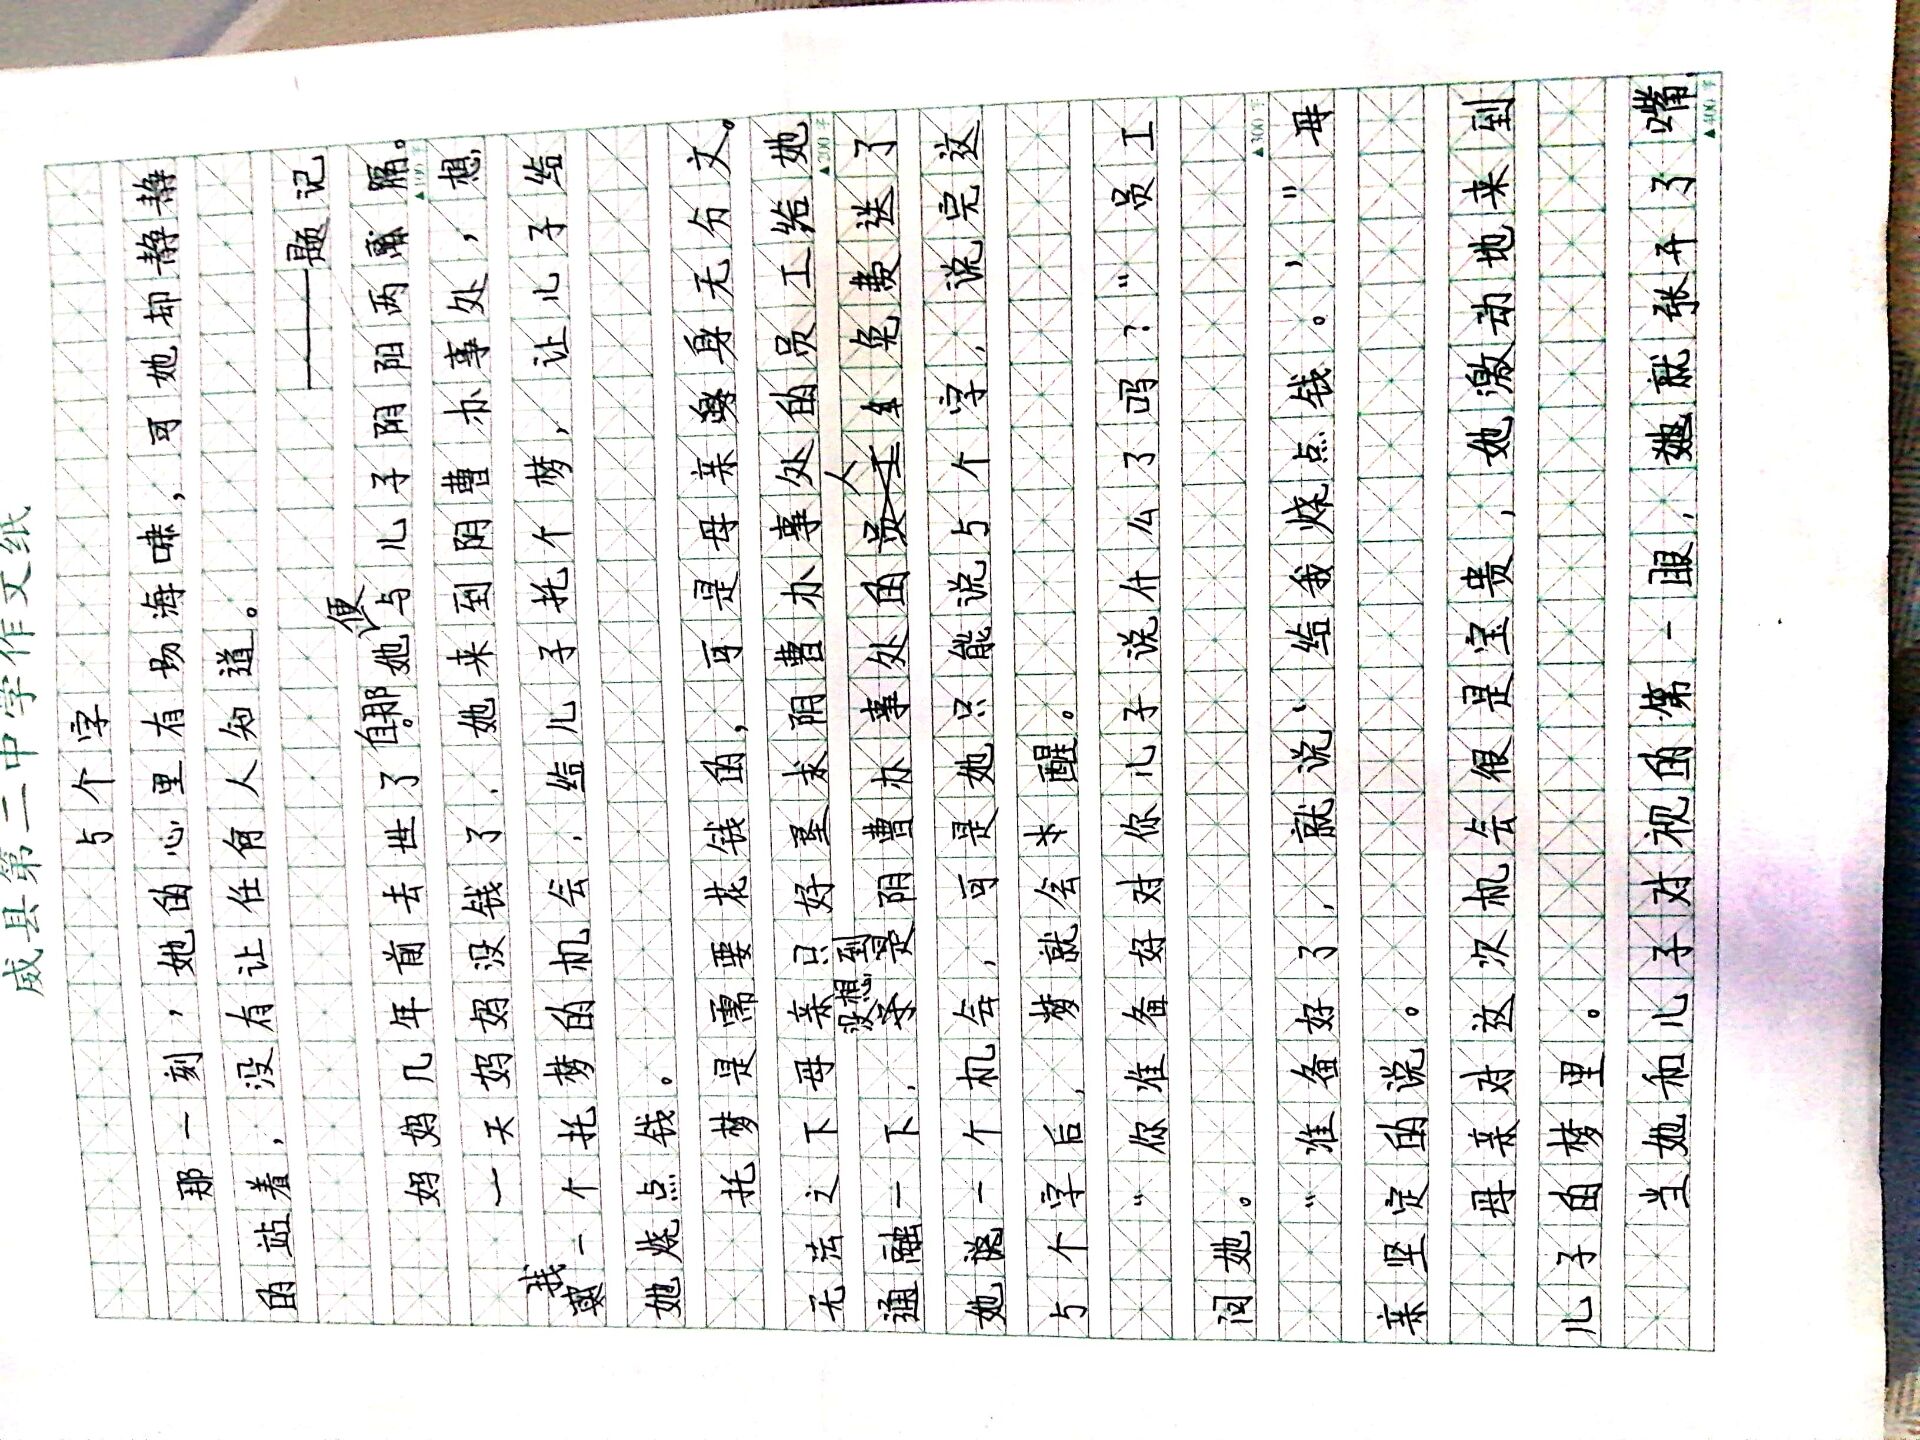 威县第二中学作文纸
5个字
那一刻，她的心里有场海啸，可她却静静
的站着，没有让任何人知道。
——题记
妈妈几年前去世了自那她便与儿子阴阳两隔。
▲100字
一天妈妈没钱了，她来到阴曹办事处，想，
找一个托梦的机会，给儿子托个梦，让儿子给
她烧点钱。
托梦是需要花钱的，可是母亲身无分文。
无法之下母亲只好恳求阴曹办事处的员工给她
▲200字
通融一下，没想到是阴曹办事处的人免费送了
她一个机会，可是她只能说5个字，说完这
5个字后，梦就会醒。
“你准备好对你儿子说什么了吗？“员工
问她。
▲300字
“准备好了，就说‘给我烧点钱。’"母
亲坚定的说。
母亲对这次机会很是宝贵，她激动地来到
儿子的梦里。
当她和儿子对视的第一眼，她就张开了嘴
▲400字